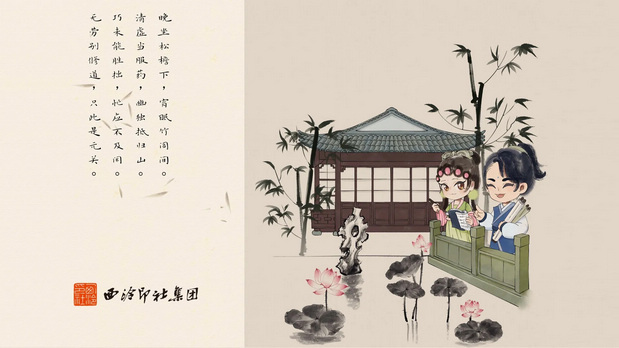 晚坐松檐下，宵眠竹阁间。
清虚当服药，幽独抵归山。
巧未能胜拙，忙应不及闲。
无劳别修道，只此是元关。
西泠印社集团